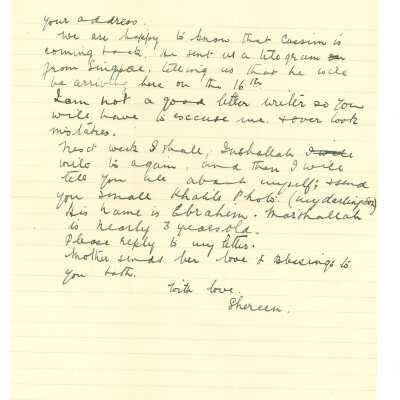 your address.
We are happy to know that Cassim is
coming back. He sent us a telegram
from Singpore, telling us that he will
be arriving here on the 16th
I am not a good letter writer so you
will have to excuse me & over look
mistakes.
Next week I shall, Inshallah
write to again, and then I will
tell you all about myself; & send
you small Photo. (my darling boy)
His name is Ebrahim. Marshallah
is nearly 3 years old.
Please reply to my letter.
Mother sends her love & blessings to
you both.
With love.
Shereen.